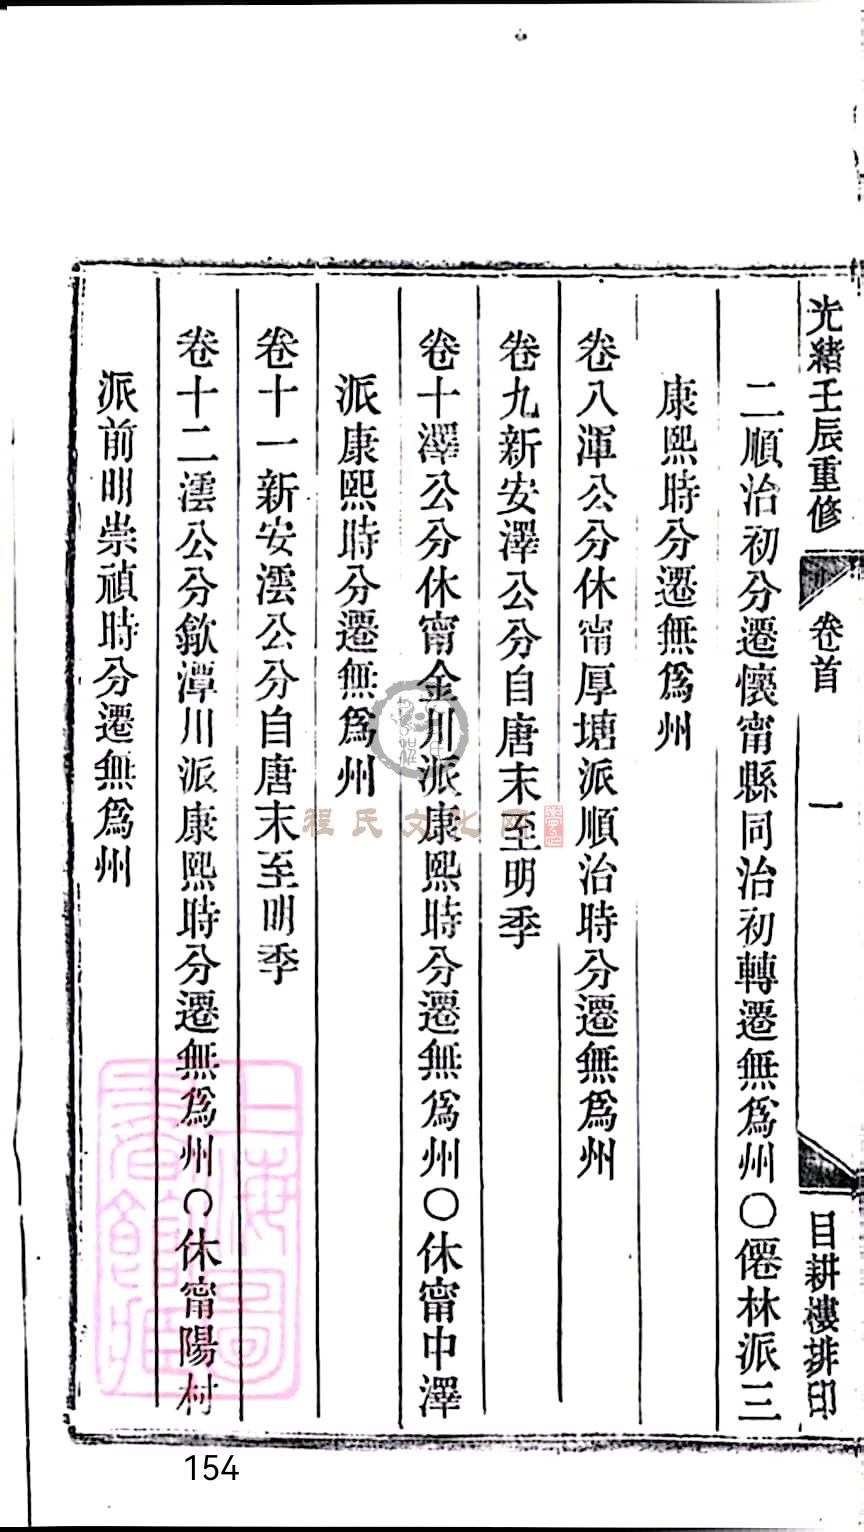 光緒壬辰重修
卷首
一
目耕樓排印
二順治初分遷懷甯縣同治初轉遷無爲州〇僊林派三
康熙時分遷無爲州
卷八渾公分休甯厚塘派順治時分遷無爲州
卷九新安澤公分自唐末至明季
卷十澤公分休甯金川派康熙時分遷無爲州〇休甯中澤
派康熙時分遷無爲州
卷十一新安澐公分自唐末至明季
卷十二澐公分歙潭川派康熙時分遷無爲州〇休甯陽村
派前明崇禎時分遷無爲州
程氏文化网
上海圖書館藏
154